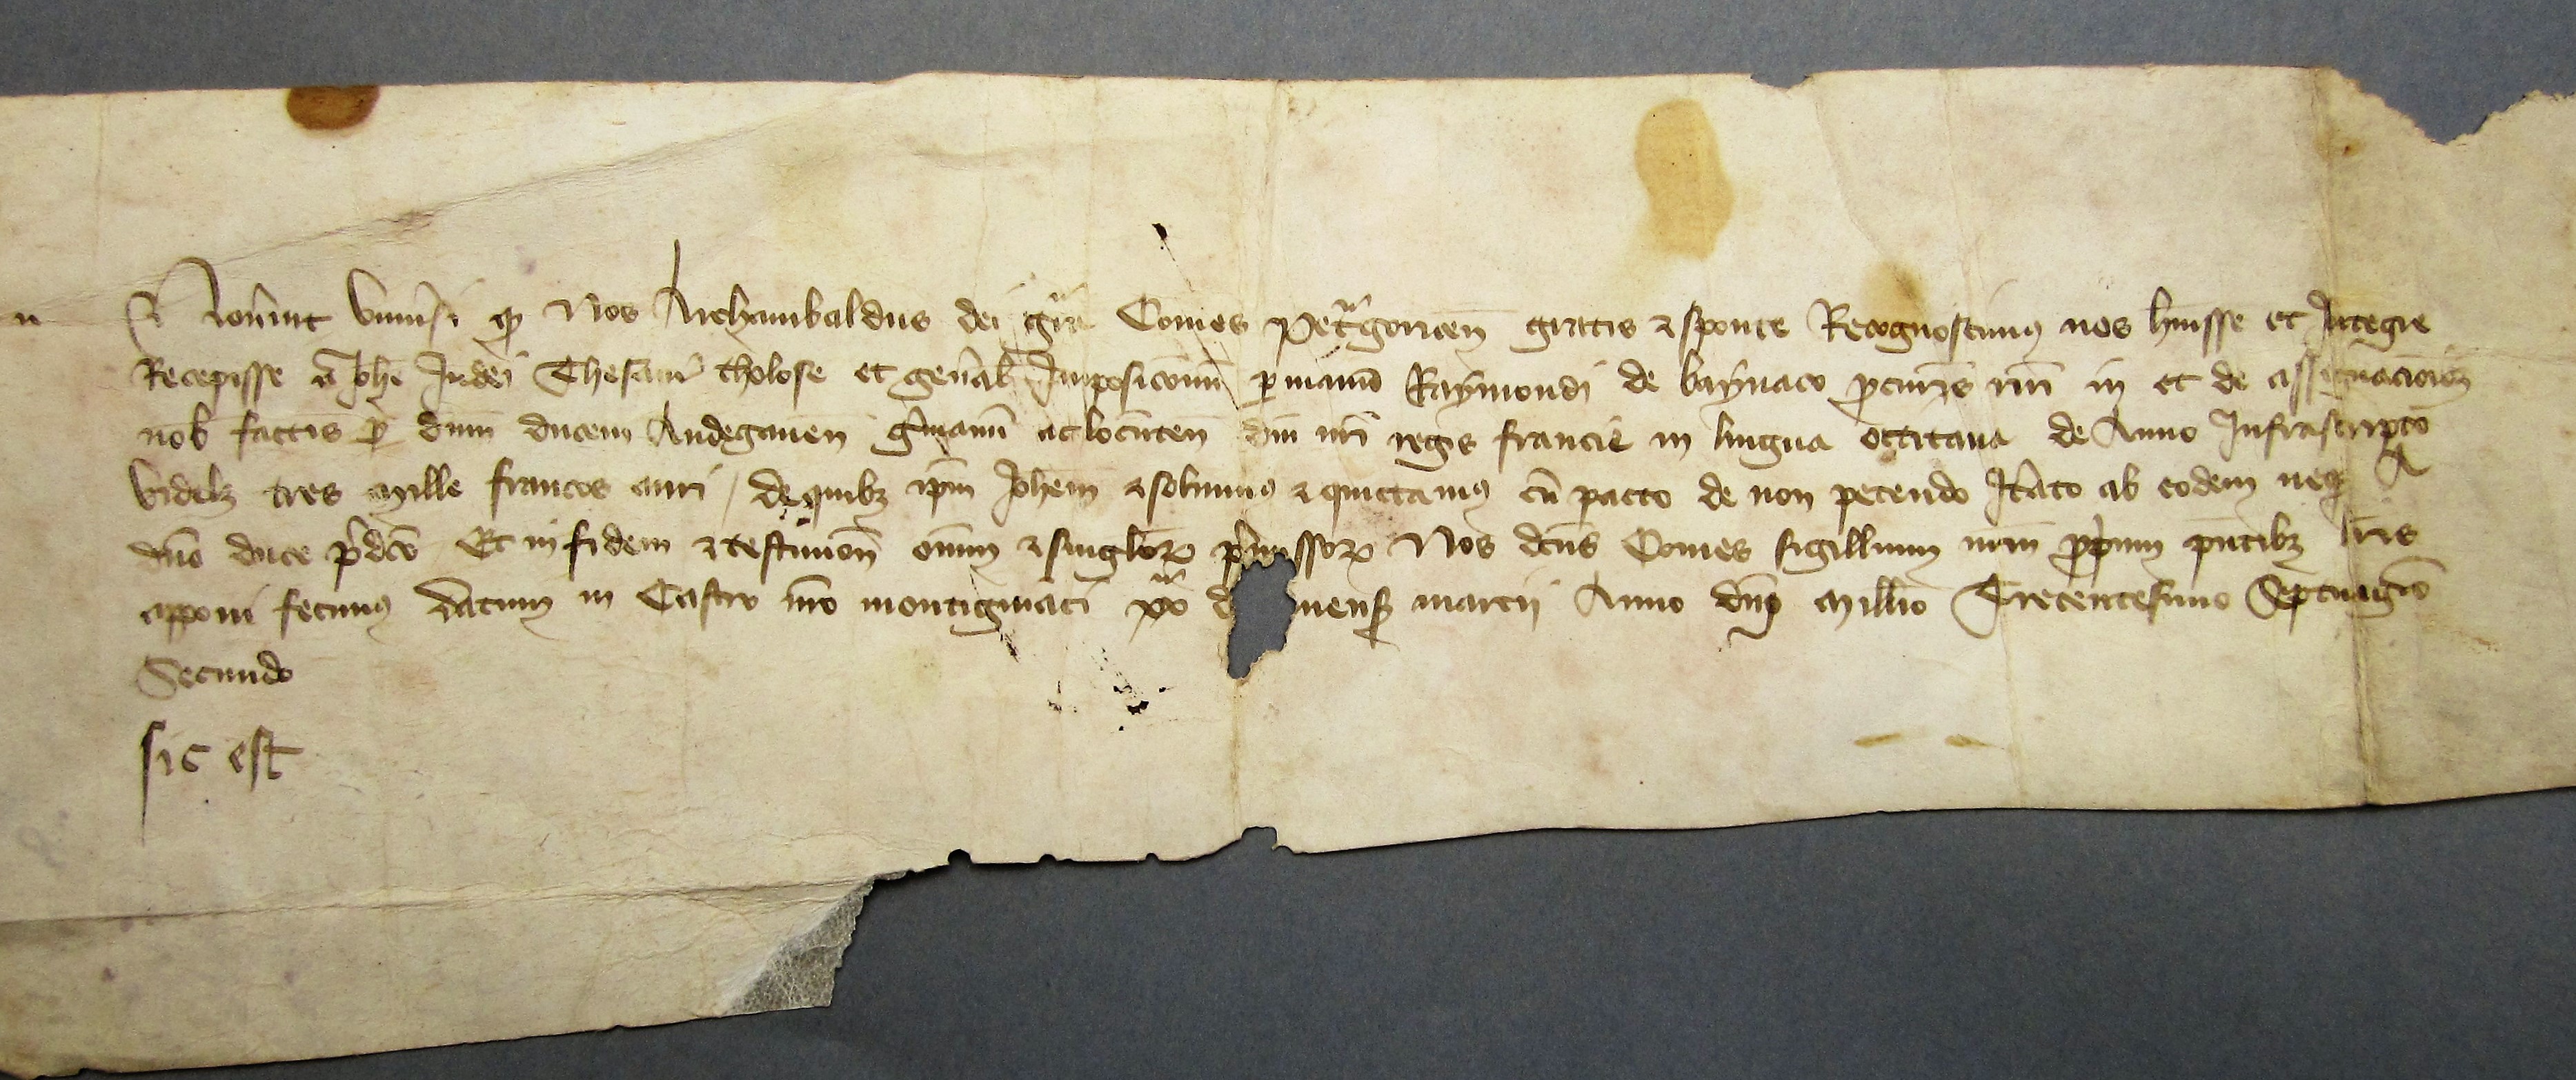 Noverint universi qd Nos Archambaldus dei gra Comes Petgoricen gratis et sponte Recognoscimus nos huisse et Integre
Recepisse a Johe Judei Thesaur tholose et general Imposiconum per manu Raymondi de baynaco pcuris nri in et de assignacoibz
nob factis p dnm ducem Andegauen germanu ac locuten dni nri regis francie in lingua occitana de Anno Infrascripto
videlz tres mille francos auri / de quibz ipm Johem absoluimus et quictamus cu pacto de non petendo Itato ab eodem neqz A
dno duce pdco Et in fidem et testimon omium et singlor pmissor Nos dcus Comes sigillum nrm ppium pntibz lris
apponi fecimus Datum in Castro nro montigniaci xxa d mensis marcii Anno dni millio Trecentesimo Septuagio
Secundo
sic est